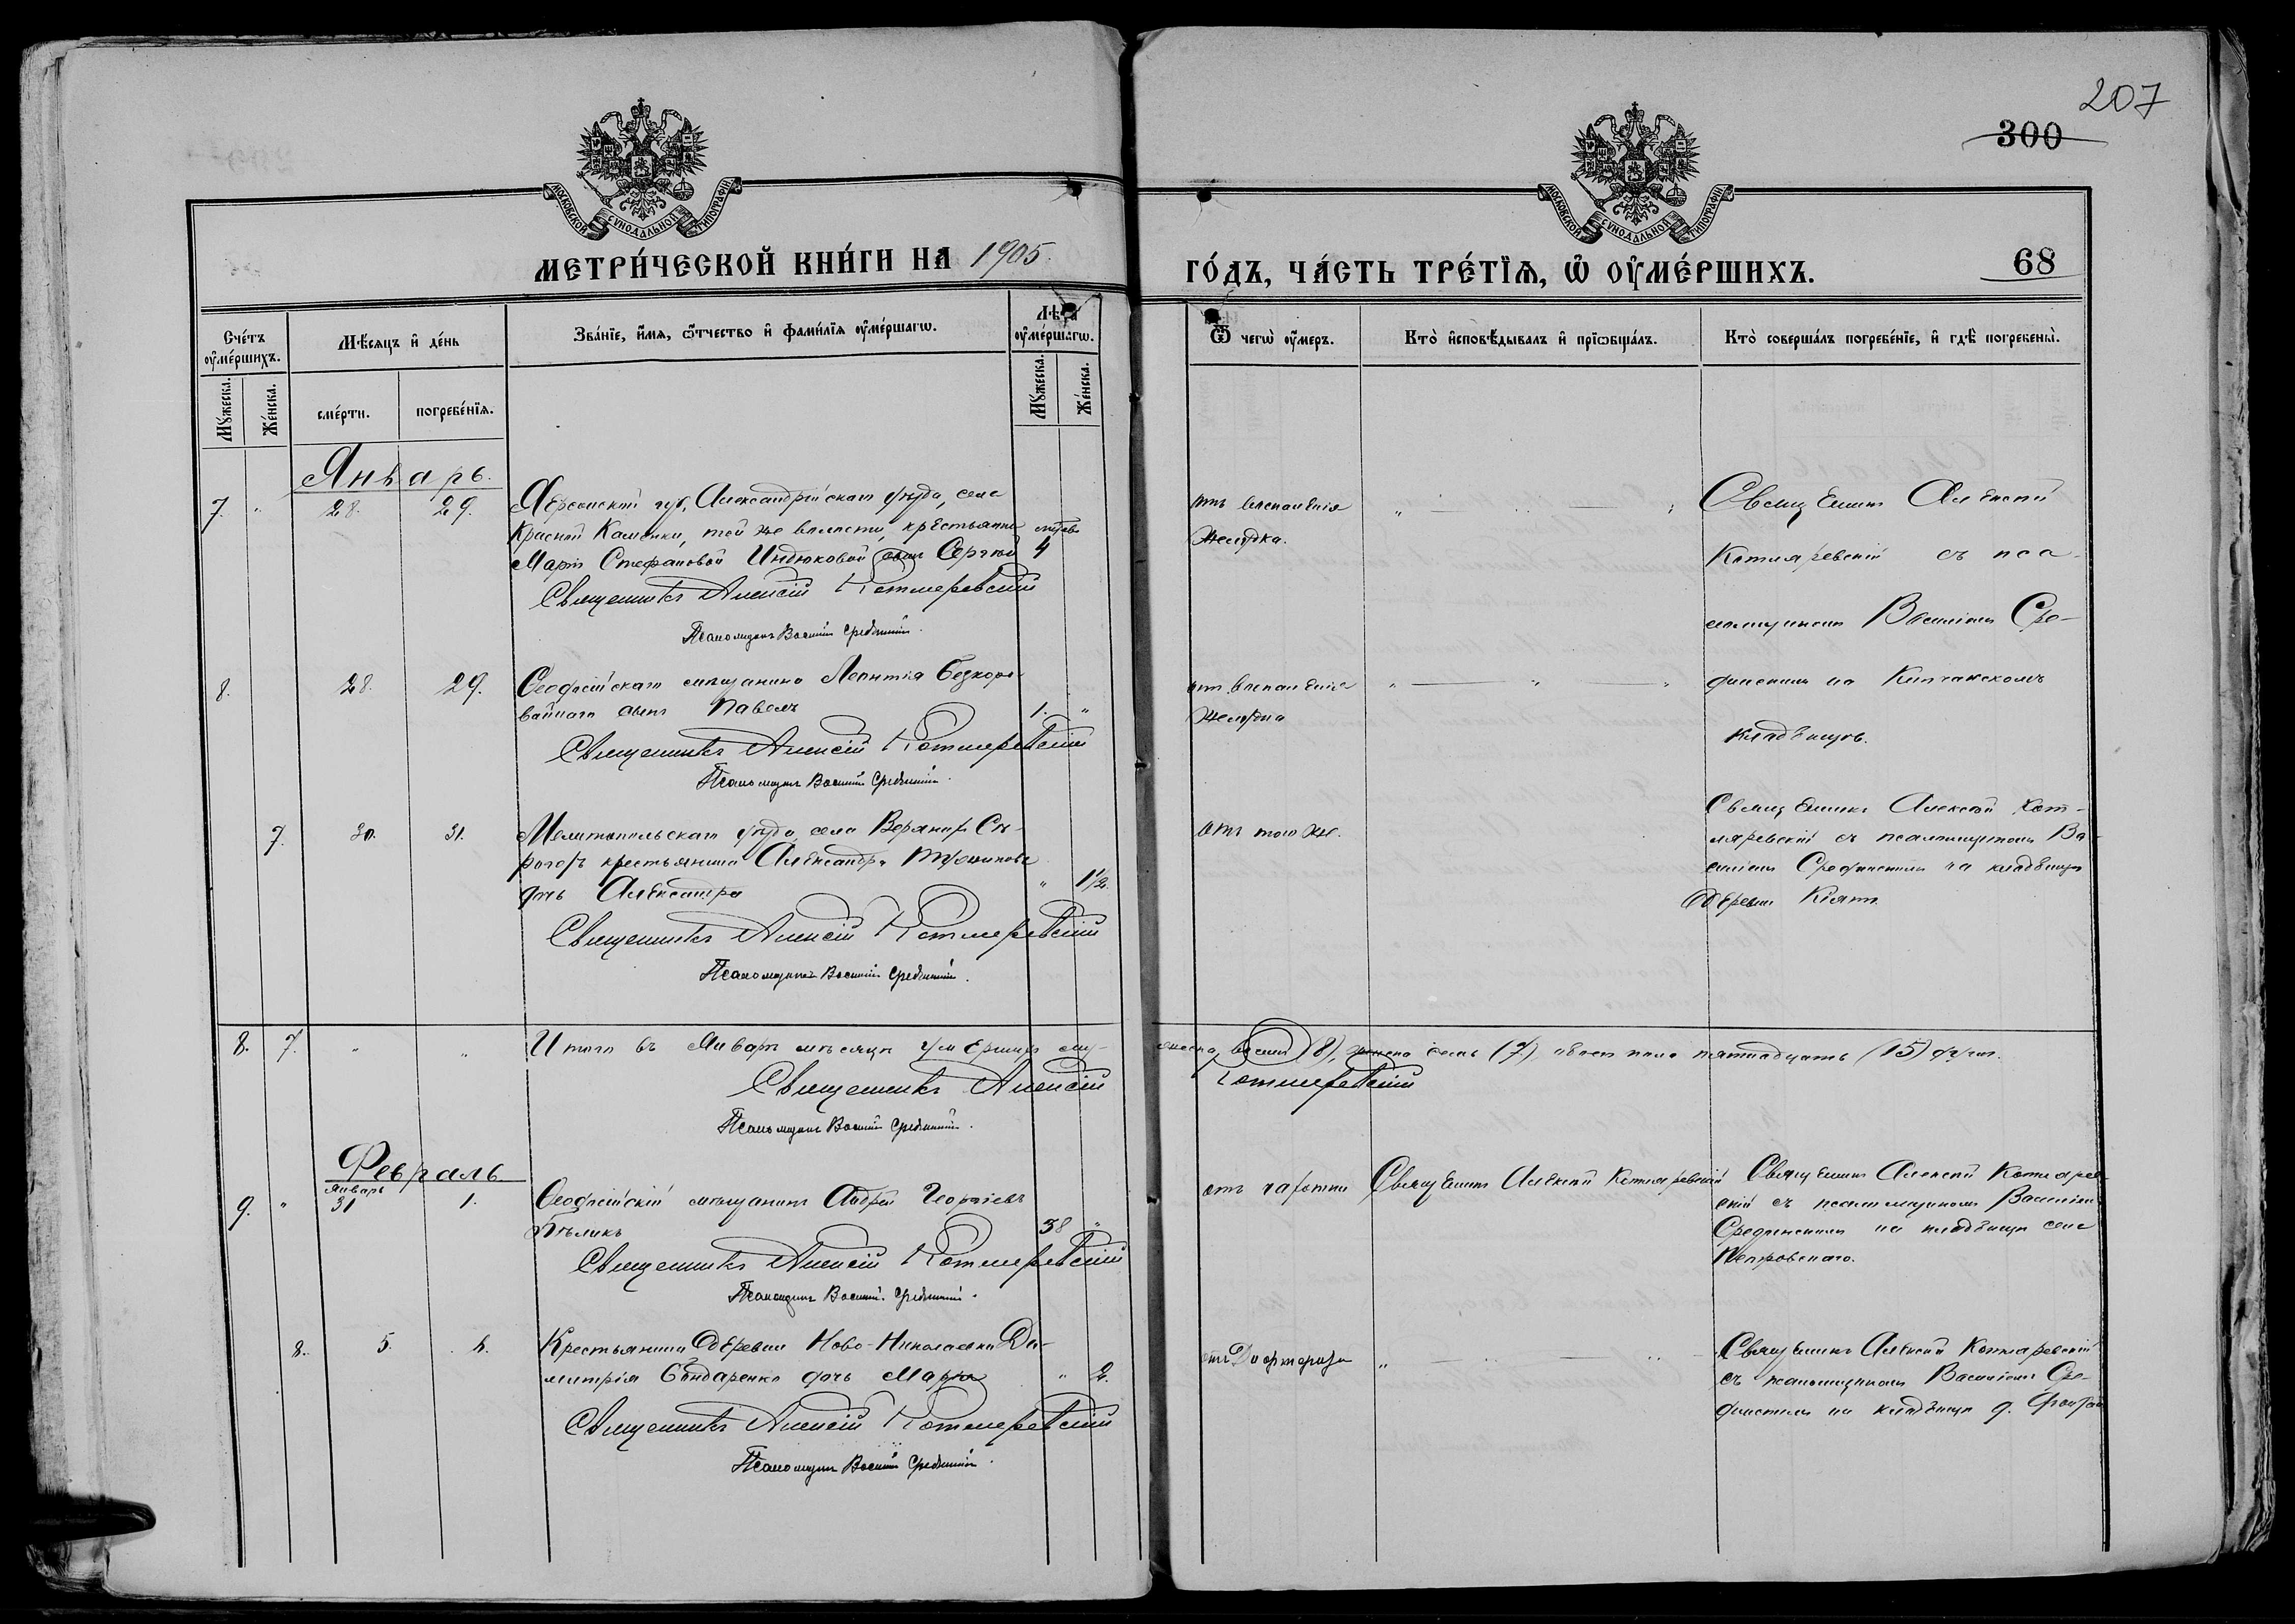 207
300
МОСКОВСКОЙ СѴНОДАЛЬНОЙ ТИПОГРАФІИ
МОСКОВСКОЙ СѴНОДАЛЬНОЙ ТИПОГРАФІИ
МЕТРИ́ЧЕСКОЙ КНИ́ГИ НА 1905.
ГО́ДЪ, ЧА́СТЬ ТРЕ́ТІѦ, Ѡ҆ ОУ҆МЕ́РШИХЪ.
68
Сче́тъ оу҆ме́ршихъ.
Мѣ́сяцъ и҆ де́нь
Зва́нїе, и҆́мѧ, ѻ҆́тчество и҆ фами́лїѧ оу҆ме́ршагѡ.
Лѣ́та оу҆ме́ршагѡ.
Ѿ чегѡ̀ оу҆́меръ.
Кто̀ и҆сповѣ́дывалъ и҆ прїѡбща́лъ.
Кто̀ соверша́лъ погребе́нїе, и҆ гдѣ̀ погребены̀.
Мꙋ́жеска.
Же́нска.
сме́рти.
погребе́нїѧ.
Мꙋ́жеска.
Же́нска.
Январь.
7. " 28. 29. Херсонской губ., Александрійскаго уѣзда, села
Красной Каменки, той же волости, крестьянки
Марѳы Стефановой Индюковой сынъ Сергѣй 4
Священникъ Алексій Котляревскій
Псаломщикъ Василій Срединскій.
отъ воспаленія
желудка.
Священникъ Алексѣй
Котляревскій съ пса-
ломщикомъ Василіемъ Сре-
динскимъ на Кипчакскомъ
кладбищѣ.
8. 28. 29. Ѳеодосійскаго мѣщанина Леонтія Безкоро-
вайнаго сынъ Павелъ 1. "
Священникъ Алексій Котляревскій
Псаломщикъ Василій Срединскій.
отъ воспаленія
желудка
7. 30. 31. Мелитопольскаго уѣзда, села Верхнихъ Сѣ-
рогозъ крестьянина Александра
дочь Александра " 1½.
Священникъ Алексій Котляревскій
Псаломщикъ Василій Срединскій.
отъ того же.
Священникъ Алексѣй Кот-
ляревскій съ псаломщикомъ Ва-
силіемъ Срединскимъ на кладбищѣ
деревни Кіятъ.
8. 7. " " Итого въ Январѣ мѣсяцѣ умершихъ му-
жеска восемь (8), женска семь (7), обоего пола пятнадцать (15) душъ.
Священникъ Алексій Котляревскій
Псаломщикъ Василій Срединскій.
Февраль
Январь
9. " 31 1. Ѳеодосійскій мѣщанинъ Андрей Георгіевъ
Бѣликъ 38 "
Священникъ Алексій Котляревскій
Псаломщикъ Василій Срединскій.
отъ чахотки
Священникъ Алексѣй Котляревскій
Священникъ Алексѣй Котлярев-
скій съ псаломщикомъ Василіемъ
Срединскимъ на кладбищѣ села
Петровскаго.
8. 5. Крестьянина деревни Ново-Николаевки Ди-
митрія Бондаренко дочь Марѳа " 2.
Священникъ Алексій Котляревскій
Псаломщикъ Василій Срединскій.
отъ Дифтерита
Священникъ Алексѣй Котляревскій
съ псаломщикомъ Василіемъ Сре-
динскимъ на кладбищѣ д.